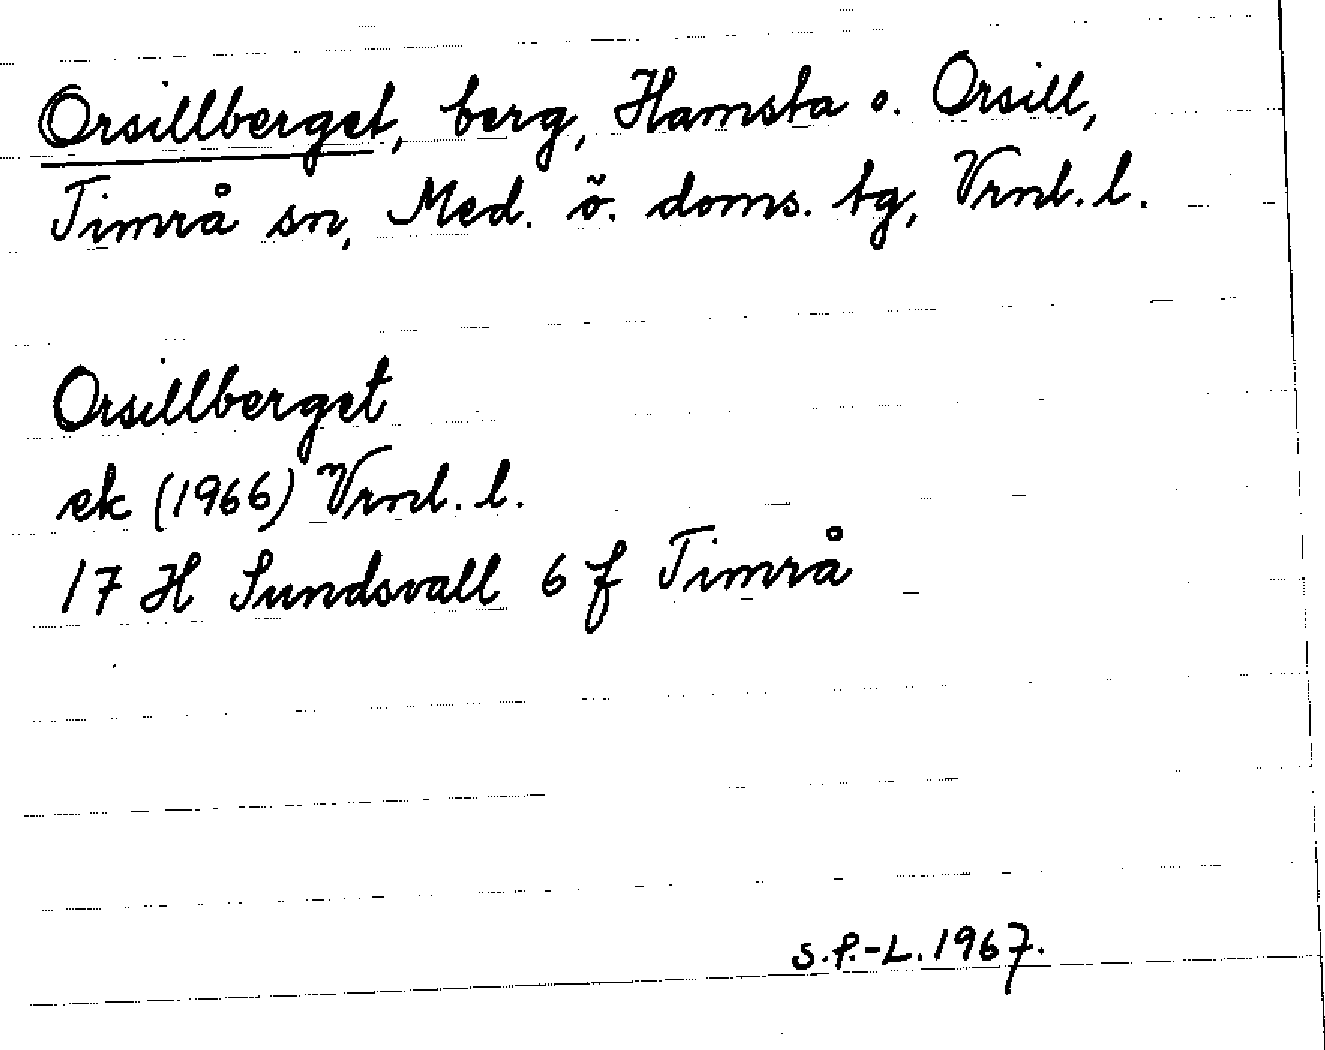 Orsillberget, berg, Hamsta o. Orsill,
Timrå sn, Med. ö. doms. tg, Vrnl. l.
Orsillberget
ek (1966) Vrnl. l.
17 H Sundsvall 6 f Timrå
S.P.-L. 1967.